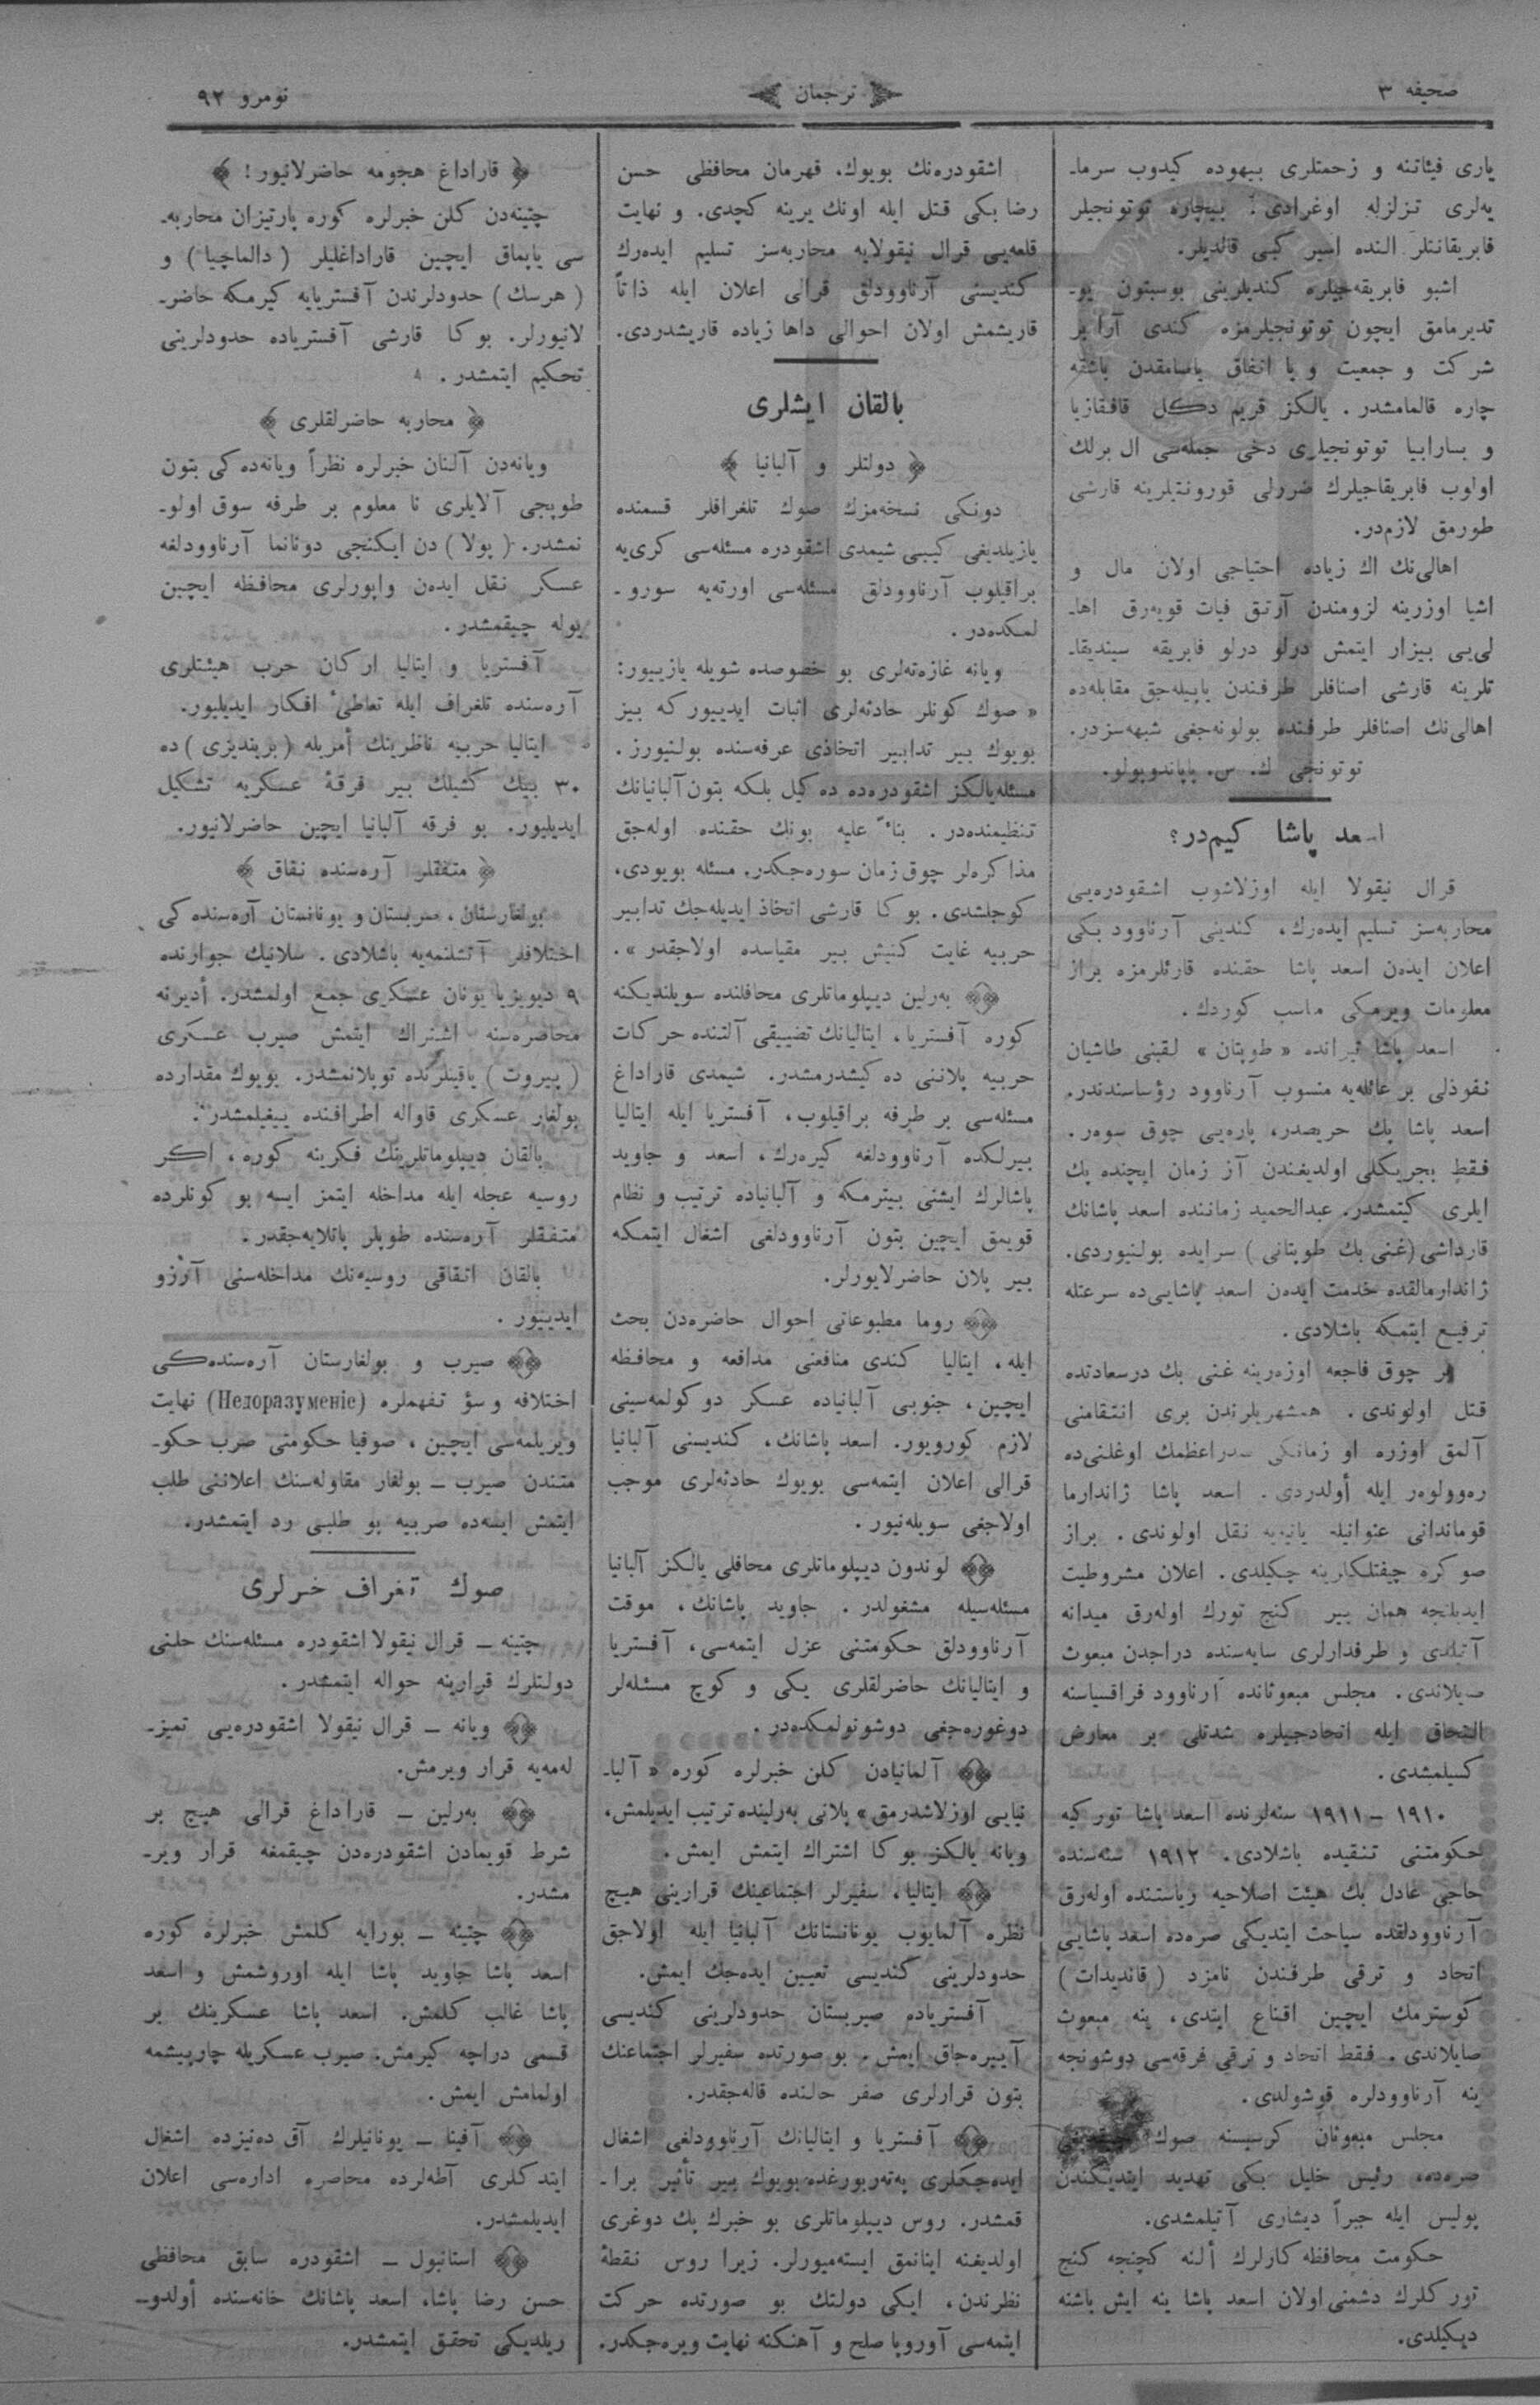 صحیفه ۳
ترجمان
نومرو ۹۲
یاری فیئاتنه و زحمتلری بیهوده کیدوب سرما-
یه‌لری تزلزله اوغرادی. بیچاره توتونجیلر
فابریقانتلر النده اسیر کبی قالدیلر.
اشبو فابریقه‌جیلره کندیلرینی بوسبتون یو-
تدیرمامق ایچون توتونجیلرمزه کندی آرا بر
شرکت و جمعیت و یا اتفاق یاسامقدن باشقه
چاره قالمامشدر. یالکز قریم دکل قافقازیا
و بسارابیا توتونجیلری دخی جمله‌سی ال برلك
اولوب فابریقاجیلرك ضررلی قورونتیلرینه قارشی
طورمق لازم‌در.
اهالی‌نك اك زیاده احتیاجی اولان مال و
اشیا اوزرینه لزومندن آرتق فیات قویه‌رق اها-
لی‌یی بیزار ایتمش درلو درلو فابریقه سیندیقا-
تلرینه قارشی اصنافلر طرفندن یاپیله‌جق مقابله‌ده
اهالی‌نك اصنافلر طرفنده بولونه‌جغی شبهه‌سزدر.
توتونجی ك. س. پاپاندوپولو.
اسعد پاشا کیم‌در؟
قرال نیقولا ایله اوزلاشوب اشقودره‌یی
محاربه‌سز تسلیم ایده‌رك، کندینی آرناوود بکی
اعلان ایده‌ن اسعد پاشا حقنده قارئلرمزه براز
معلومات ویرمکی مناسب کوردك.
اسعد پاشا تیرانده « طوپتان » لقبنی طاشیان
نفوذلی بر عائله‌یه منسوب آرناوود رؤساسندندر.
اسعد پاشا پك حریصدر، پاره‌یی چوق سوه‌ر.
فقط بجریکلی اولدیغندن آز زمان ایچنده پك
ایلری کیتمشدر. عبدالحمید زماننده اسعد پاشانك
قارداشی (غنی بك طوپتانی) سرایده بولنیوردی.
ژاندارمالقده خدمت ایده‌ن اسعد پاشایی‌ده سرعتله
ترفیع ایتمکه باشلادی.
بر چوق فاجعه اوزه‌رینه غنی بك درسعادتده
قتل اولوندی. همشهریلرندن بری انتقامنی
آلمق اوزره او زمانکی صدراعظمك اوغلنی‌ده
ره‌وولوه‌ر ایله أولدردی. اسعد پاشا ژاندارما
قوماندانی عنوانیله یانیه‌یه نقل اولوندی. براز
صوکره چیفتلکارینه چکیلدی. اعلان مشروطیت
ایدیلنجه همان بیر کنج تورك اوله‌رق میدانه
آتیلدی و طرفدارلری سایه‌سنده دراجدن مبعوث
صایلاندی. مجلس مبعوثانده آرناوود فراقسیاسنه
التحاق ایله اتحادجیلره شدتلی بر معارض
کسیلمشدی.
۱۹۱۰ – ۱۹۱۱ سنه‌لرنده اسعد پاشا تورکیه
حکومتنی تنقیده باشلادی. ۱۹۱۲ سنه‌سنده
حاجی عادل بك هیئت اصلاحیه ریاستنده اوله‌رق
آرناوودلقده سیاحت ایتدیکی صره‌ده اسعد پاشایی
اتحاد و ترقی طرفندن نامزد (قاندیدات)
کوسترمك ایچین اقناع ایتدی، ینه مبعوث
صایلاندی. فقط اتحاد و ترقی فرقه‌سی دوشونجه
ینه آرناوودلره قوشولدی.
مجلس مبعوثان کرسیسنه صوك
صره‌ده، رئیس خلیل بکی تهدید ایتدیکندن
پولیس ایله جبراً دیشاری آتیلمشدی.
حکومت محافظه‌کارلرك ألنه کچنجه کنج
تورکلرك دشمنی اولان اسعد پاشا ینه ایش باشنه
دیکیلدی.
اشقودره‌نك بویوك، قهرمان محافظی حسن
رضا بکی قتل ایله اونك یرینه کچدی. و نهایت
قلعه‌یی قرال نیقولایه محاربه‌سز تسلیم ایده‌رك
کندیسنی آرناوودلق قرالی اعلان ایله ذاتاً
قاریشمش اولان احوالی داها زیاده قاریشدردی.
بالقان ایشلری
﴿ دولتلر و آلبانیا ﴾
دونکی نسخه‌مزك صوك تلغرافلر قسمنده
یازیلدیغی کیبی شیمدی اشقودره مسئله‌سی کری‌یه
براقیلوب آرناوودلق مسئله‌سی اورته‌یه سورو-
لمکده‌در.
ویانه غازه‌ته‌لری بو خصوصده شویله یازییور:
« صوك کونلر حادثه‌لری اثبات ایدییور که بیز
بویوك بیر تدابیر اتخاذی عرفه‌سنده بولنیورز.
مسئله یالکز اشقودره‌ده ده کیل بلکه بتون آلبانیانك
تنظیمنده‌در. بناءً علیه بونك حقنده اوله‌جق
مذاکره‌لر چوق زمان سوره‌جکدر. مسئله بویودی،
کوجلشدی. بوکا قارشی اتخاذ ایدیله‌جك تدابیر
حربیه غایت کنیش بیر مقیاسده اولاجقدر ».
به‌رلین دیپلوماتلری محافلنده سویلندیکنه
کوره آفستریا، ایتالیانك تضییقی آلتنده حرکات
حربیه پلاننی ده‌کیشدرمشدر. شیمدی قاراداغ
مسئله‌سی بر طرفه براقیلوب، آفستریا ایله ایتالیا
بیرلکده آرناوودلغه کیره‌رك، اسعد و جاوید
پاشالرك ایشنی بیترمکه و آلبانیاده ترتیب و نظام
قویمق ایچین بتون آرناوودلغی اشغال ایتمکه
بیر پلان حاضرلایورلر.
روما مطبوعاتی احوال حاضره‌دن بحث
ایله، ایتالیا کندی منافعنی مدافعه و محافظه
ایچین، جنوبی آلبانیاده عسکر دوکولمه‌سینی
لازم کورویور. اسعد پاشانك، کندیسنی آلبانیا
قرالی اعلان ایتمه‌سی بویوك حادثه‌لری موجب
اولاجغی سویله‌نیور.
لوندون دیپلوماتلری محافلی یالکز آلبانیا
مسئله‌سیله مشغولدر. جاوید پاشانك، موقت
آرناوودلق حکومتنی عزل ایتمه‌سی، آفستریا
و ایتالیانك حاضرلقلری یکی و کوچ مسئله‌لر
دوغوره‌جغی دوشونولمکده‌در.
آلمانیادن کلن خبرلره کوره « آلبا-
نیایی اوزلاشدرمق » پلانی به‌رلینده ترتیب ایدیلمش،
ویانه یالکز بوکا اشتراك ایتمش ایمش.
ایتالیا، سفیرلر اجتماعینك قرارینی هیچ
نظره آلمایوب یونانستانك آلبانیا ایله اولاجق
حدودلرینی کندیسی تعیین ایده‌جك ایمش.
آفستریاده صیربستان حدودلرینی کندیسی
آییره‌جاق ایمش. بو صورتده سفیرلر اجتماعنك
بتون قرارلری صفر حالنده قاله‌جقدر.
آفستریا و ایتالیانك آرناوودلغی اشغال
ایده‌جکلری په‌ته‌ربورغده بویوك بیر تأثیر برا-
قمشدر. روس دیپلوماتلری بو خبرك پك دوغری
اولدیغنه اینانمق ایسته‌میورلر. زیرا روس نقطهٔ
نظرندن، ایکی دولتك بو صورتده حرکت
ایتمه‌سی آوروپا صلح و آهنکنه نهایت ویره‌جکدر.
﴿ قاراداغ هجومه حاضرلانیور! ﴾
چتینه‌دن کلن خبرلره کوره پارتیزان محاربه-
سی یاپماق ایچین قاراداغلیلر (دالماچیا) و
(هرسك) حدودلرندن آفستریایه کیرمکه حاضر-
لانیورلر. بوکا قارشی آفستریاده حدودلرینی
تحکیم ایتمشدر.
﴿ محاربه حاضرلقلری ﴾
ویانه‌دن آلنان خبرلره نظراً ویانه‌ده‌کی بتون
طوپجی آلایلری نا معلوم بر طرفه سوق اولو-
نمشدر. (پولا) دن ایکنجی دونانما آرناوودلغه
عسکر نقل ایده‌ن واپورلری محافظه ایچین
یوله چیقمشدر.
آفستریا و ایتالیا ارکان حرب هیئتلری
آره‌سنده تلغراف ایله تعاطیٔ افکار ایدیلیور.
ایتالیا حربیه ناظرینك أمریله (بریندیزی) ده
۳۰ بیك کشیلك بیر فرقهٔ عسکریه تشکیل
ایدیلیور. بو فرقه آلبانیا ایچین حاضرلانیور.
﴿ متفقلر آره‌سنده نفاق ﴾
بولغارستان، صربستان و یونانستان آره‌سنده‌کی
اختلافلر آتشلنمه‌یه باشلادی. سلانیك جوارنده
۹ دیویزیا یونان عسکری جمع اولمشدر. أدیرنه
محاصره‌سنه اشتراك ایتمش صیرب عسکری
(پیروت) یاقینلرنده توپلانمشدر. بویوك مقدارده
بولغار عسکری قاواله اطرافنده ییغیلمشدر.
بالقان دیپلوماتلرینك فکرینه کوره، اکر
روسیه عجله ایله مداخله ایتمز ایسه بو کونلرده
متفقلر آره‌سنده طوپلر پاتلایه‌جقدر.
بالقان اتفاقی روسیه‌نك مداخله‌سنی آرزو
ایدییور.
صیرب و بولغارستان آره‌سنده‌کی
اختلافه و سؤ تفهملره (Недоразуменіе) نهایت
ویریلمه‌سی ایچین، صوفیا حکومتی صرب حکو-
متندن صیرب – بولغار مقاوله‌سنك اعلاننی طلب
ایتمش ایسه‌ده صربیه بو طلبی رد ایتمشدر.
صوك تلغراف خبرلری
چتینه – قرال نیقولا اشقودره مسئله‌سنك حلنی
دولتلرك قرارینه حواله ایتمشدر.
ویانه – قرال نیقولا اشقودره‌یی تمیز-
له‌مه‌یه قرار ویرمش.
به‌رلین – قاراداغ قرالی هیچ بر
شرط قویمادن اشقودره‌دن چیقمغه قرار ویر-
مشدر.
چتینه – بورایه کلمش خبرلره کوره
اسعد پاشا جاوید پاشا ایله اوروشمش و اسعد
پاشا غالب کلمش. اسعد پاشا عسکرینك بر
قسمی دراچه کیرمش. صیرب عسکریله چارپیشمه
اولمامش ایمش.
آفینا – یونانیلرك آق ده‌نیزده اشغال
ایتدکلری آطه‌لرده محاصره اداره‌سی اعلان
ایدیلمشدر.
استانبول – اشقودره سابق محافظی
حسن رضا پاشا، اسعد پاشانك خانه‌سنده أولدو-
ریلدیکی تحقق ایتمشدر.